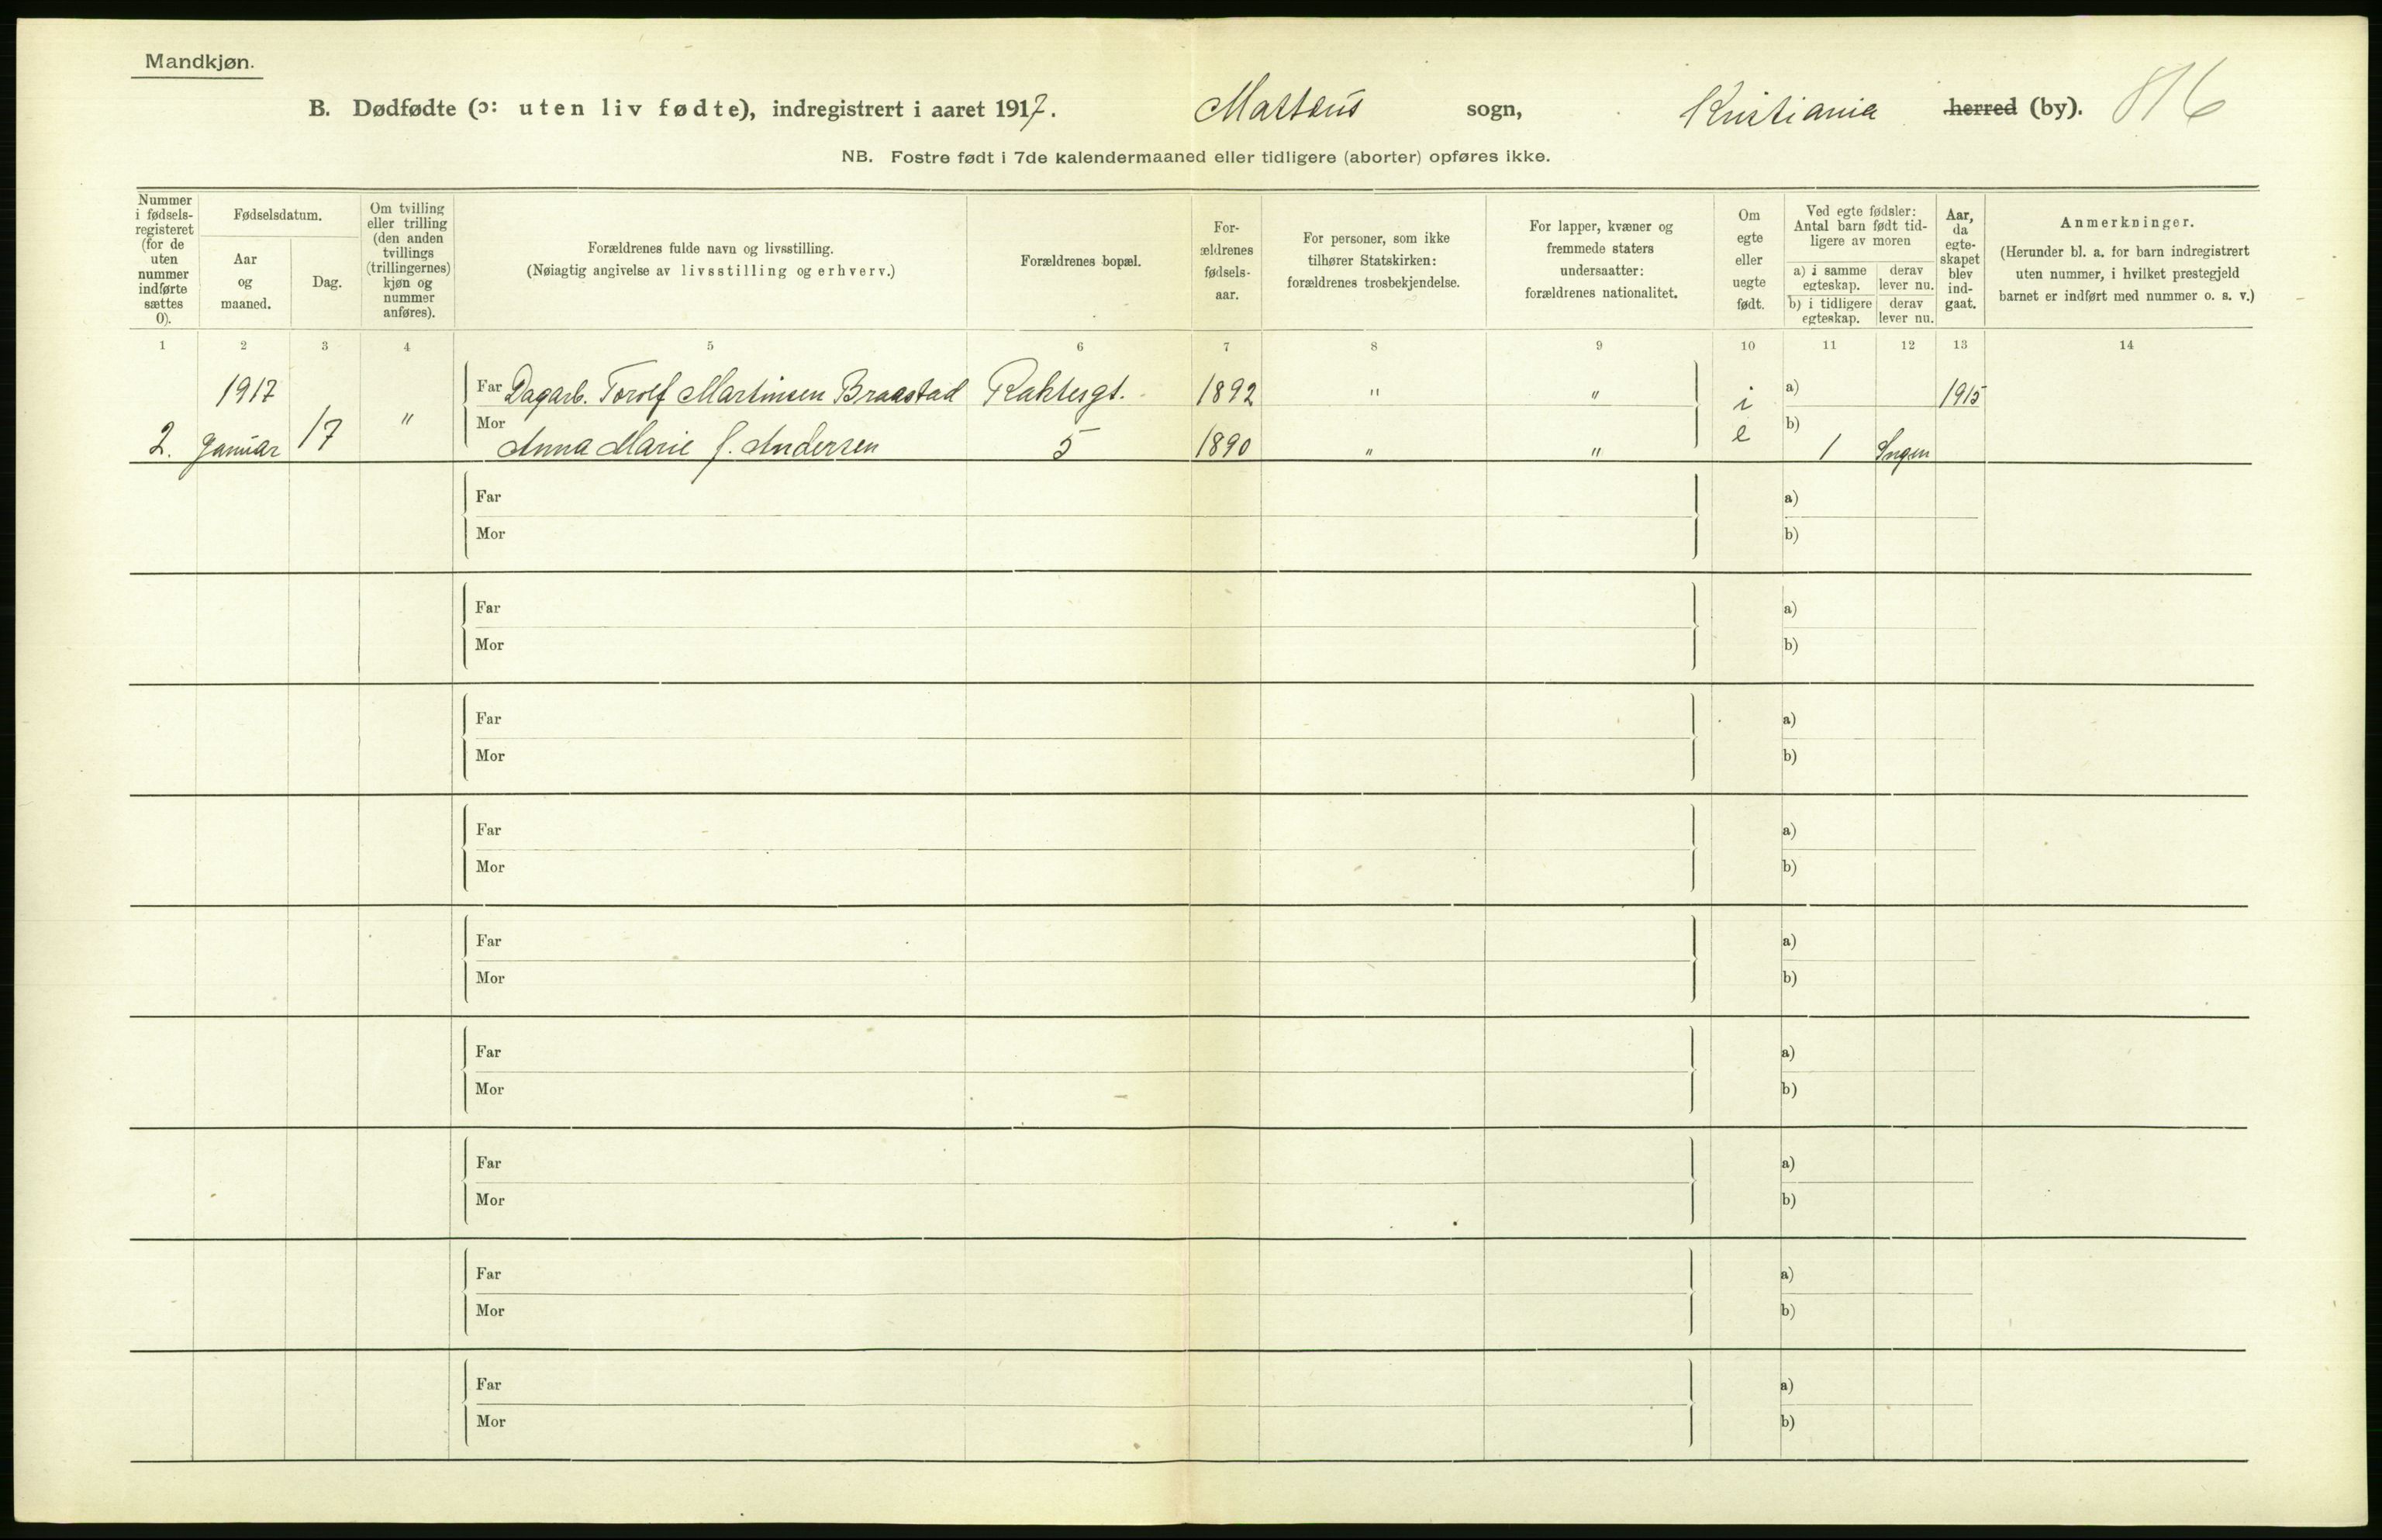 Mandkjøn.
B. Dødfødte (ɔ: uten liv fødte), indregistrert i aaret 1917. Matteus sogn, Kristiania herred (by). 816
NB. Fostre født i 7de kalendermaaned eller tidligere (aborter) opføres ikke.
Nummer i fødsels-registeret (for de uten nummer indførte sættes 0).
Fødselsdatum.
Aar og maaned.
Dag.
Om tvilling eller trilling (den anden tvillings (trillingernes) kjøn og nummer anføres).
Forældrenes fulde navn og livsstilling.
(Nøiagtig angivelse av livsstilling og erhverv.)
Forældrenes bopæl.
For-ældrenes fødsels-aar.
For personer, som ikke tilhører Statskirken: forældrenes trosbekjendelse.
For lapper, kvæner og fremmede staters undersaatter: forældrenes nationalitet.
Om egte eller uegte født.
Ved egte fødsler: Antal barn født tid-ligere av moren
a) i samme egteskap.
derav lever nu.
b) i tidligere egteskap.
derav lever nu.
Aar, da egte-skapet blev ind-gaat.
Anmerkninger.
(Herunder bl. a. for barn indregistrert uten nummer, i hvilket prestegjeld barnet er indført med nummer o. s. v.)
1 2 3 4 5 6 7 8 9 10 11 12 13 14
1917 Far Dagarb. Torolf Martinsen Braastad 1892 " " i a) 1915
2. Januar 17 " Mor Anna Marie f. Andersen 5 1890 " " e b) 1 Ingen
Far a)
Mor b)
Far a)
Mor b)
Far a)
Mor b)
Far a)
Mor b)
Far a)
Mor b)
Far a)
Mor b)
Far a)
Mor b)
Far a)
Mor b)
Far a)
Mor b)